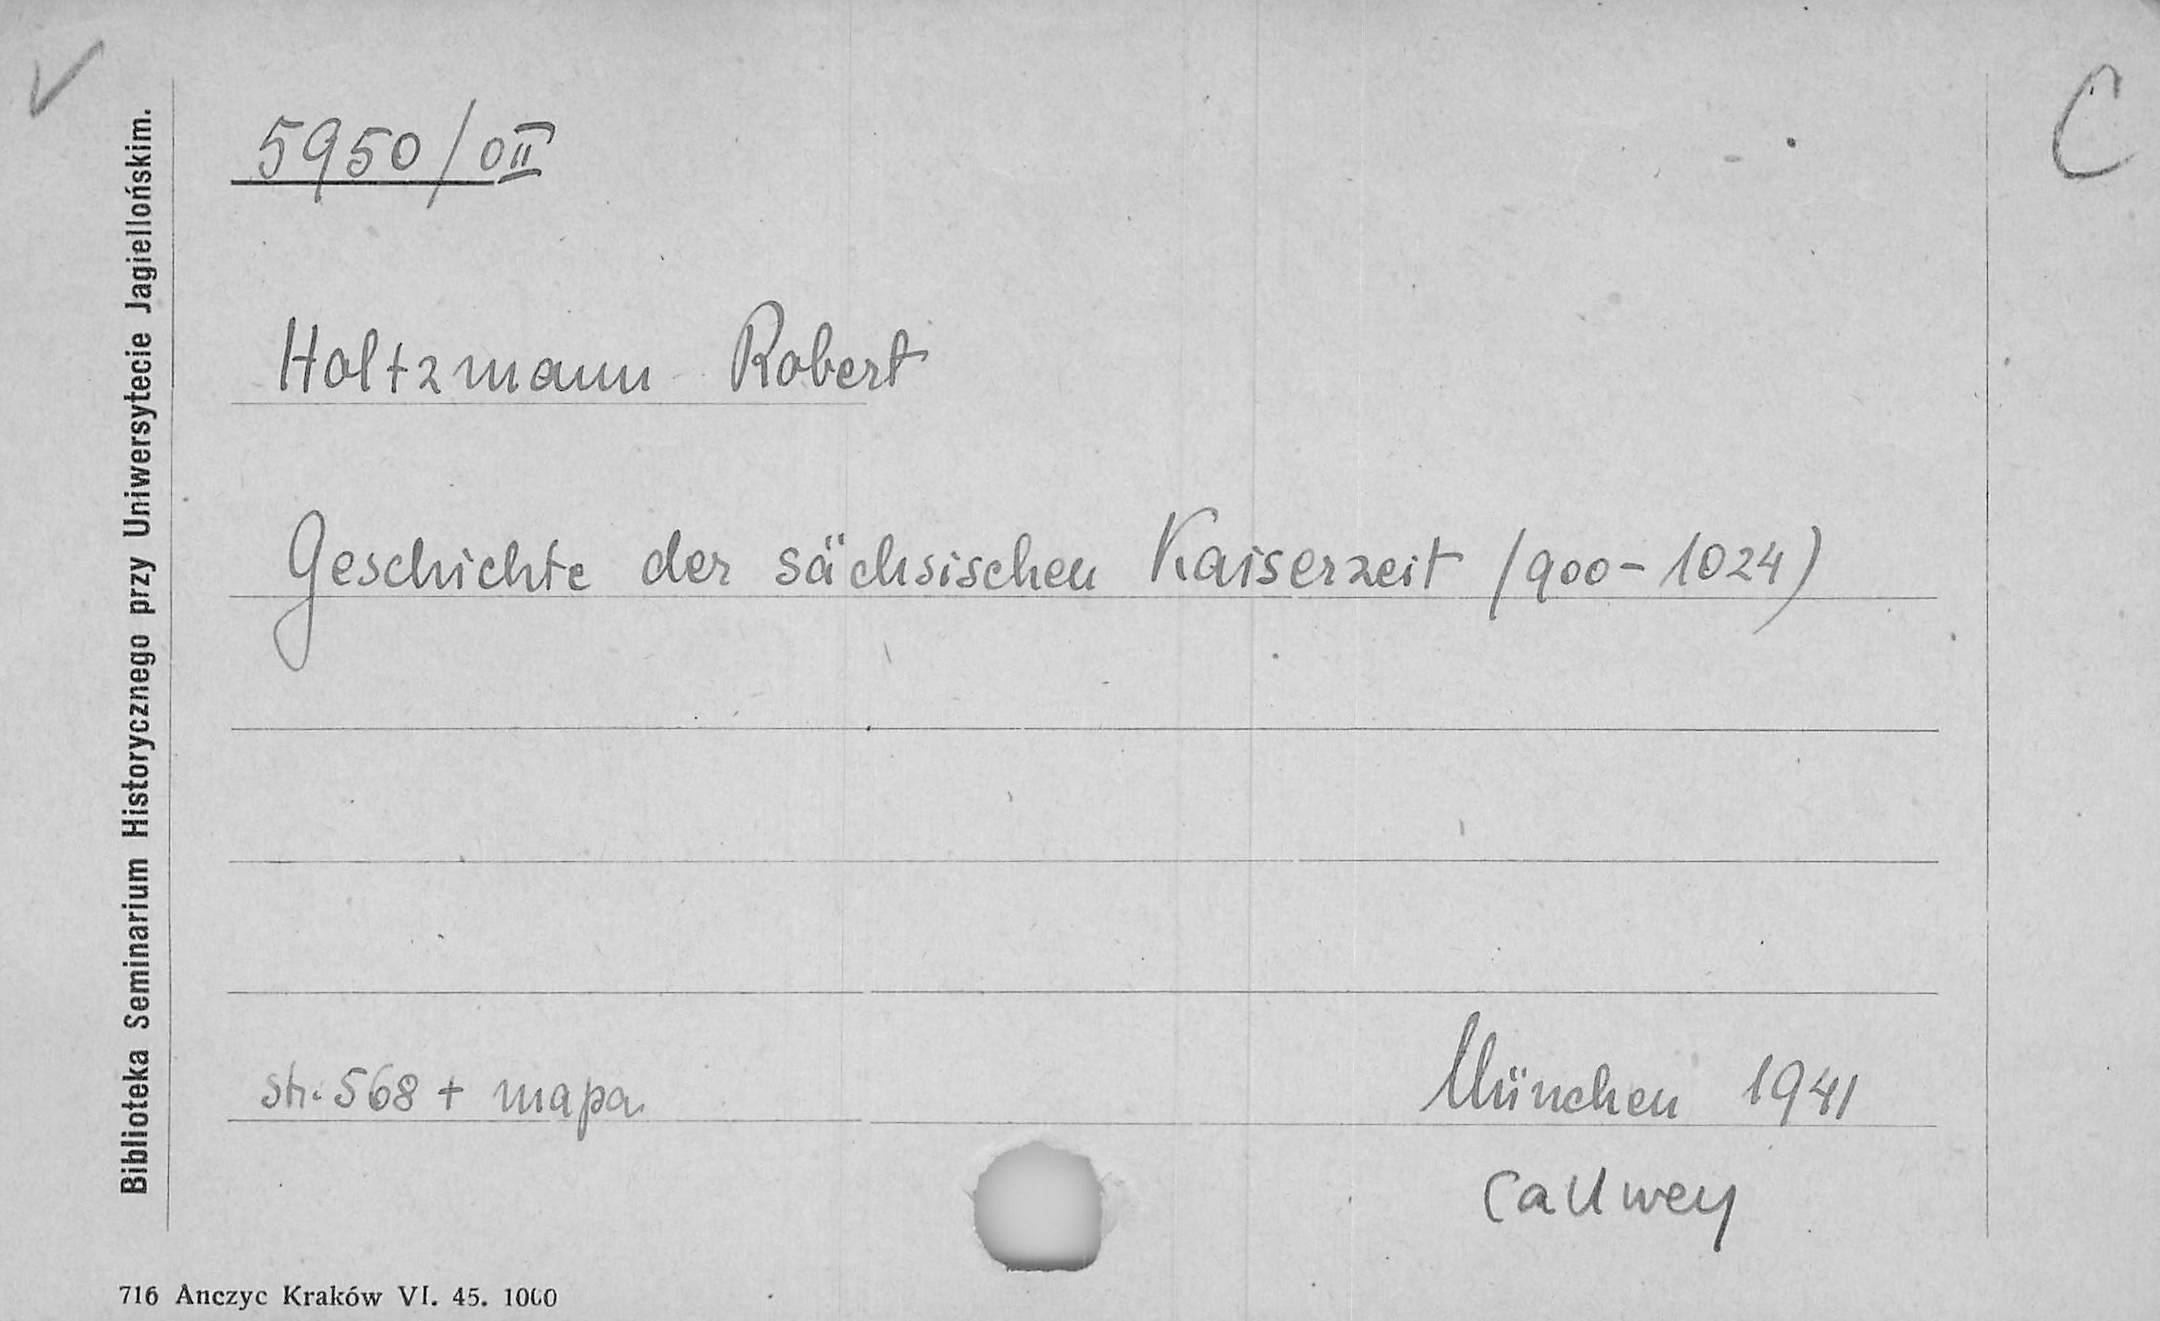 C
5950/0II
Holtzmann Robert
Geschichte der sächsischen Kaiserzeit (900-1024)
str. 568 + mapa
München 1941
Callwey
Biblioteka Seminarium Historycznego przy Uniwersytecie Jagiellońskim.
716 Anczyc Kraków VI. 45. 1000